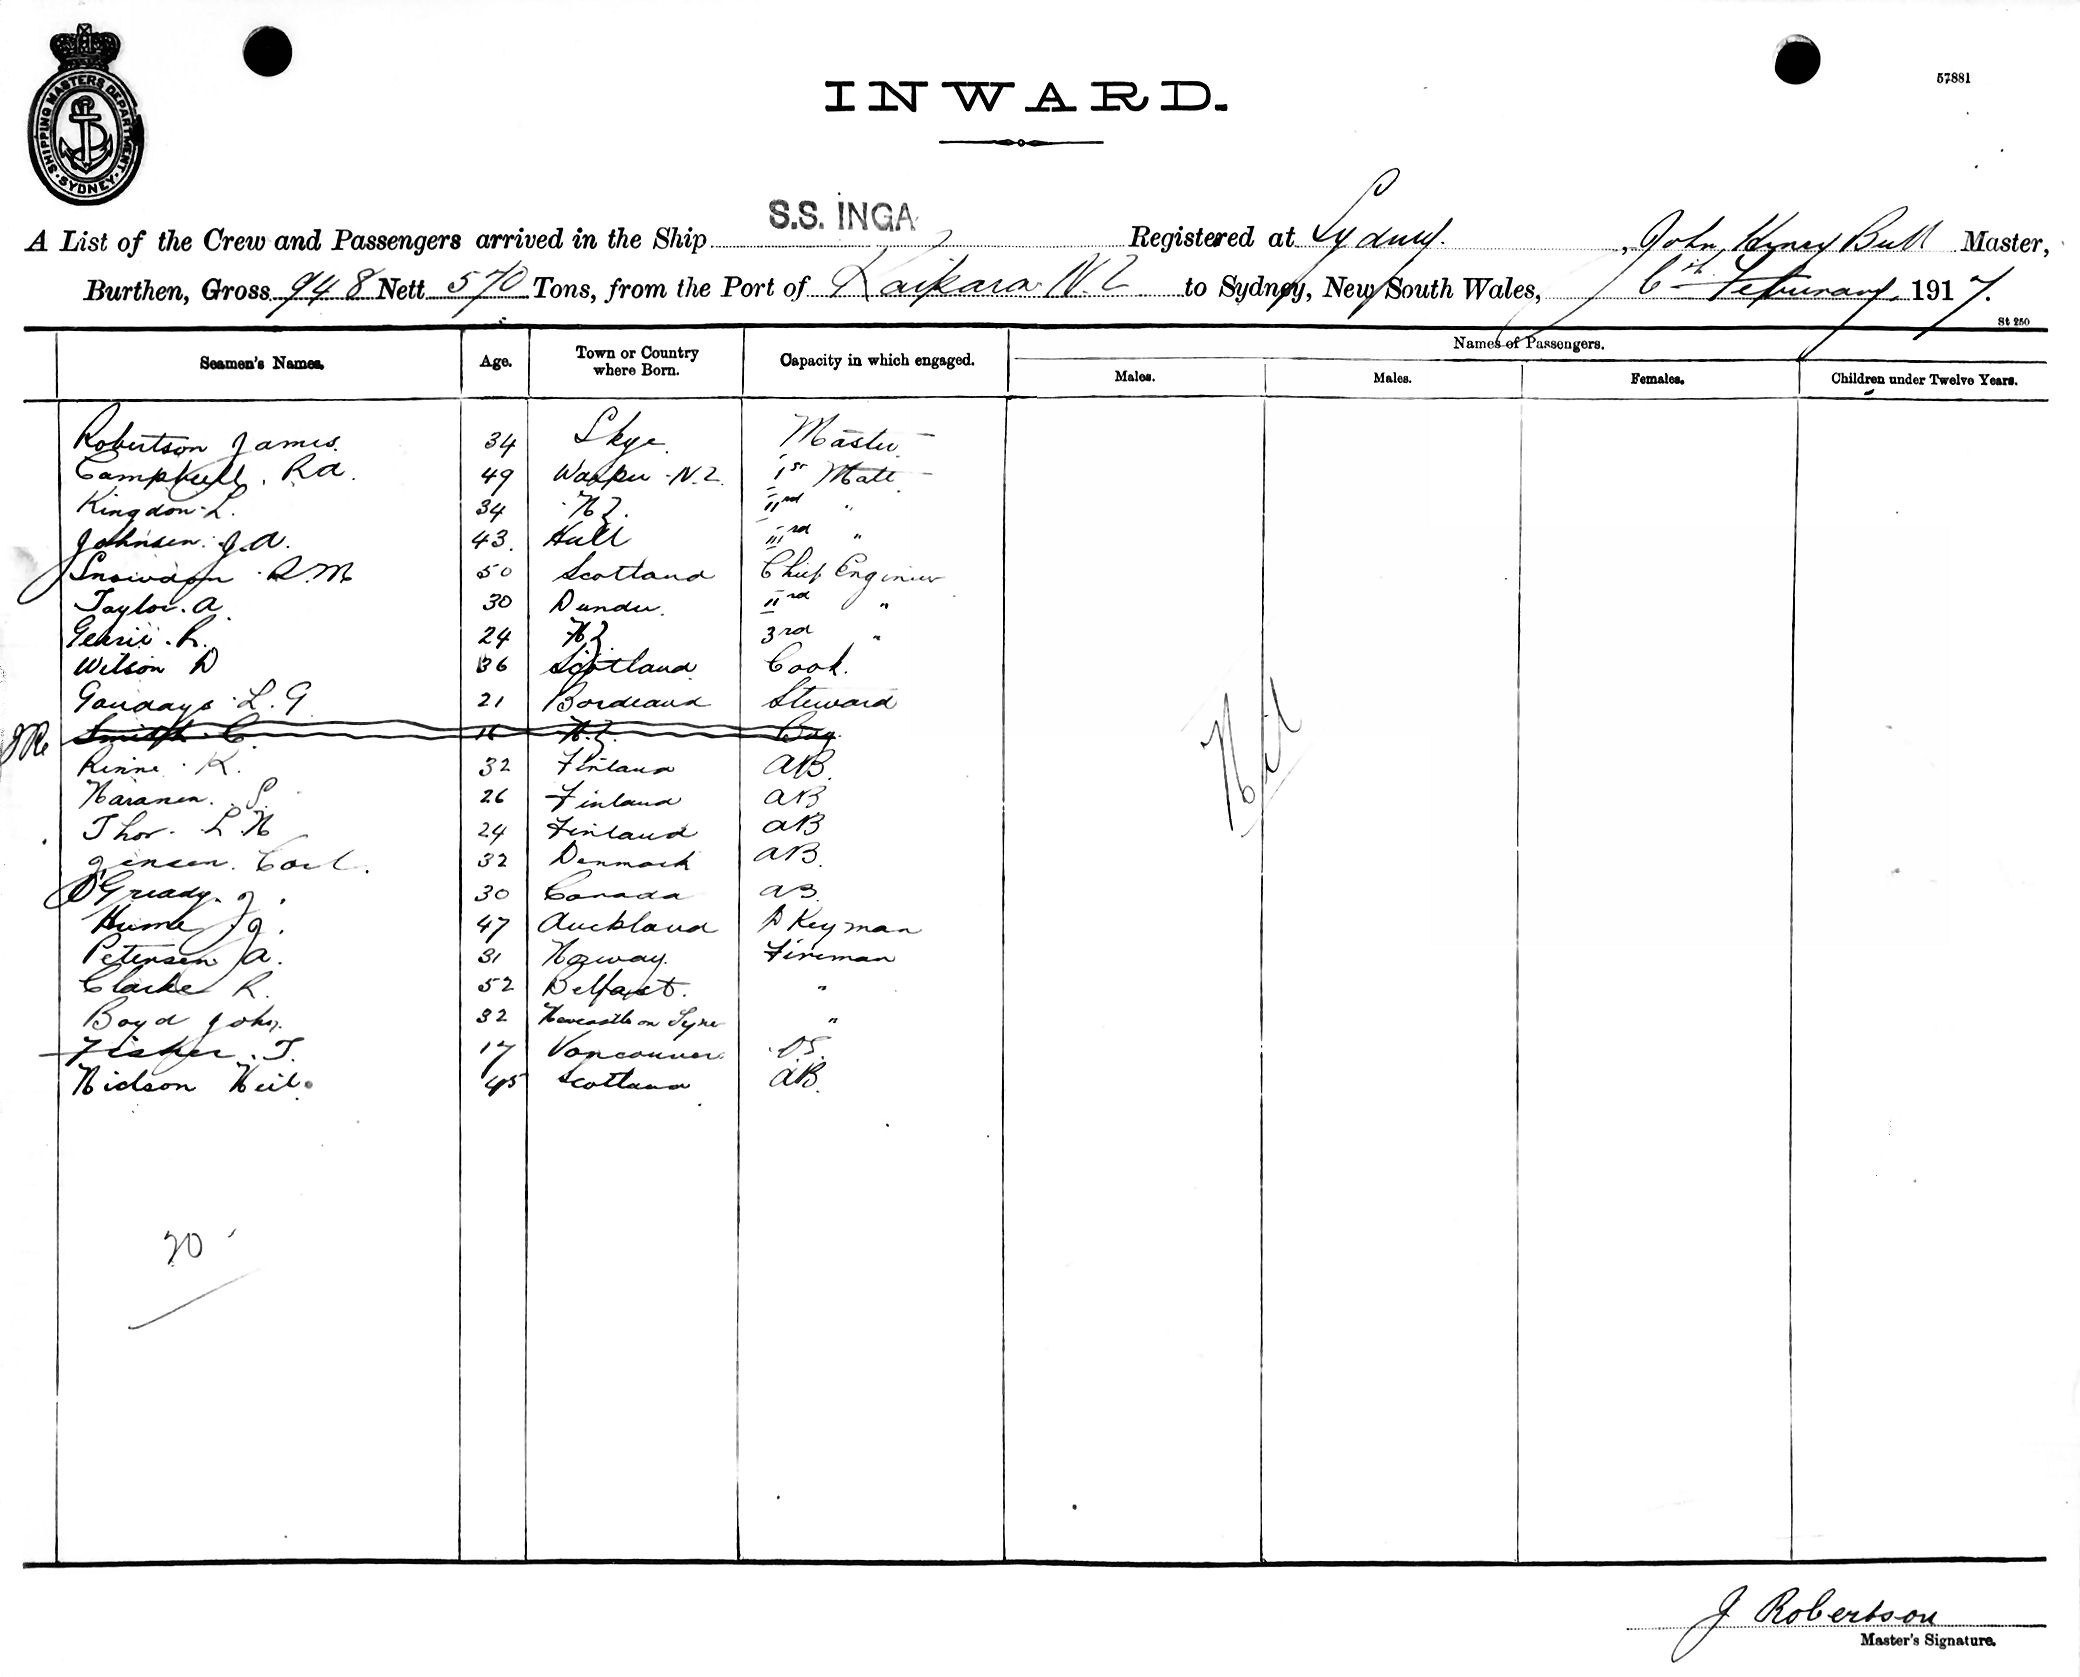 SHIPPING MASTERS DEPARTMENT
SYDNEY
57881
INWARD.
A List of the Crew and Passengers arrived in the Ship S.S. INGA Registered at Sydney. , John Henry Bull Master,
Burthen, Gross 948 Nett 570 Tons, from the Port of Kaipara N.Z to Sydney, New South Wales, 6th February 1917.
St 250
Seamen's Names. Age. Town or Country where Born. Capacity in which engaged. Names of Passengers.
Males. Males. Females. Children under Twelve Years.
Robertson James. 34 Skye. Master
Campbell. Rd. 49 N.Z. 1st Mate
Kingdon L. 34 N Z. IInd "
Johnsen. J.A. 43. Hull IIIrd "
Snowdon R.M 50 Scotland Chief Engineer
Taylor. A. 30 Dundee. IInd "
R. 24 N Z 3rd "
Wilson D 36 Scotland Cook.
L. G 21 Bordeaux Steward
JR. Smith C. 16 N.Z. Boy.
Rinne. K. 32 Finland AB.
Naranen. S. 26 Finland AB
Thor. L. N 24 Finland AB
Jensen. Carl. 32 Denmark AB.
O'Gready. J. 30 Canada AB.
Hume J. 47 Auckland D Keyman
Petersen A. 31 Norway. Fireman
Clarke R. 52 Belfast. "
Boyd John. 32 Newcastle on Tyne "
Fisher. T. 17 Vancouver. OS.
Nielson Neil. 45 Scotland AB.
Nil
20
J Robertson
Master's Signature.